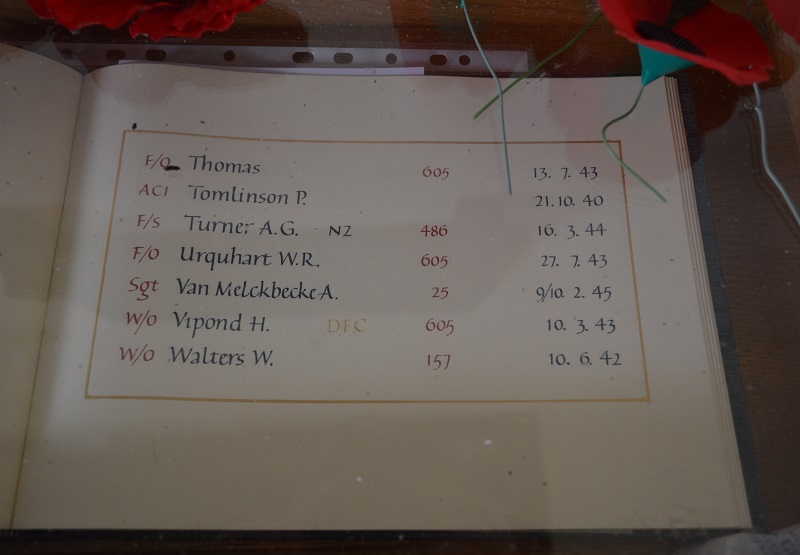 F/O Thomas 605 13. 7. 43
AC1 Tomlinson P. 21. 10. 40
F/S Turner A.G. NZ 486 16. 3. 44
F/O Urquhart W.R. 605 27. 7. 43
Sgt Van Melckbecke A. 25 9/10. 2. 45
W/O Vipond H. DFC 605 10. 3. 43
W/O Walters W. 157 10. 6. 42